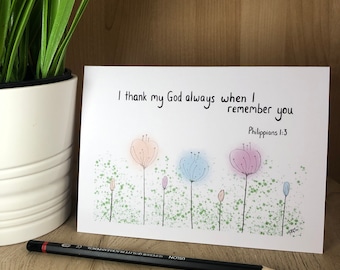 I thank my God always when I
remember you
Philippians 1:3